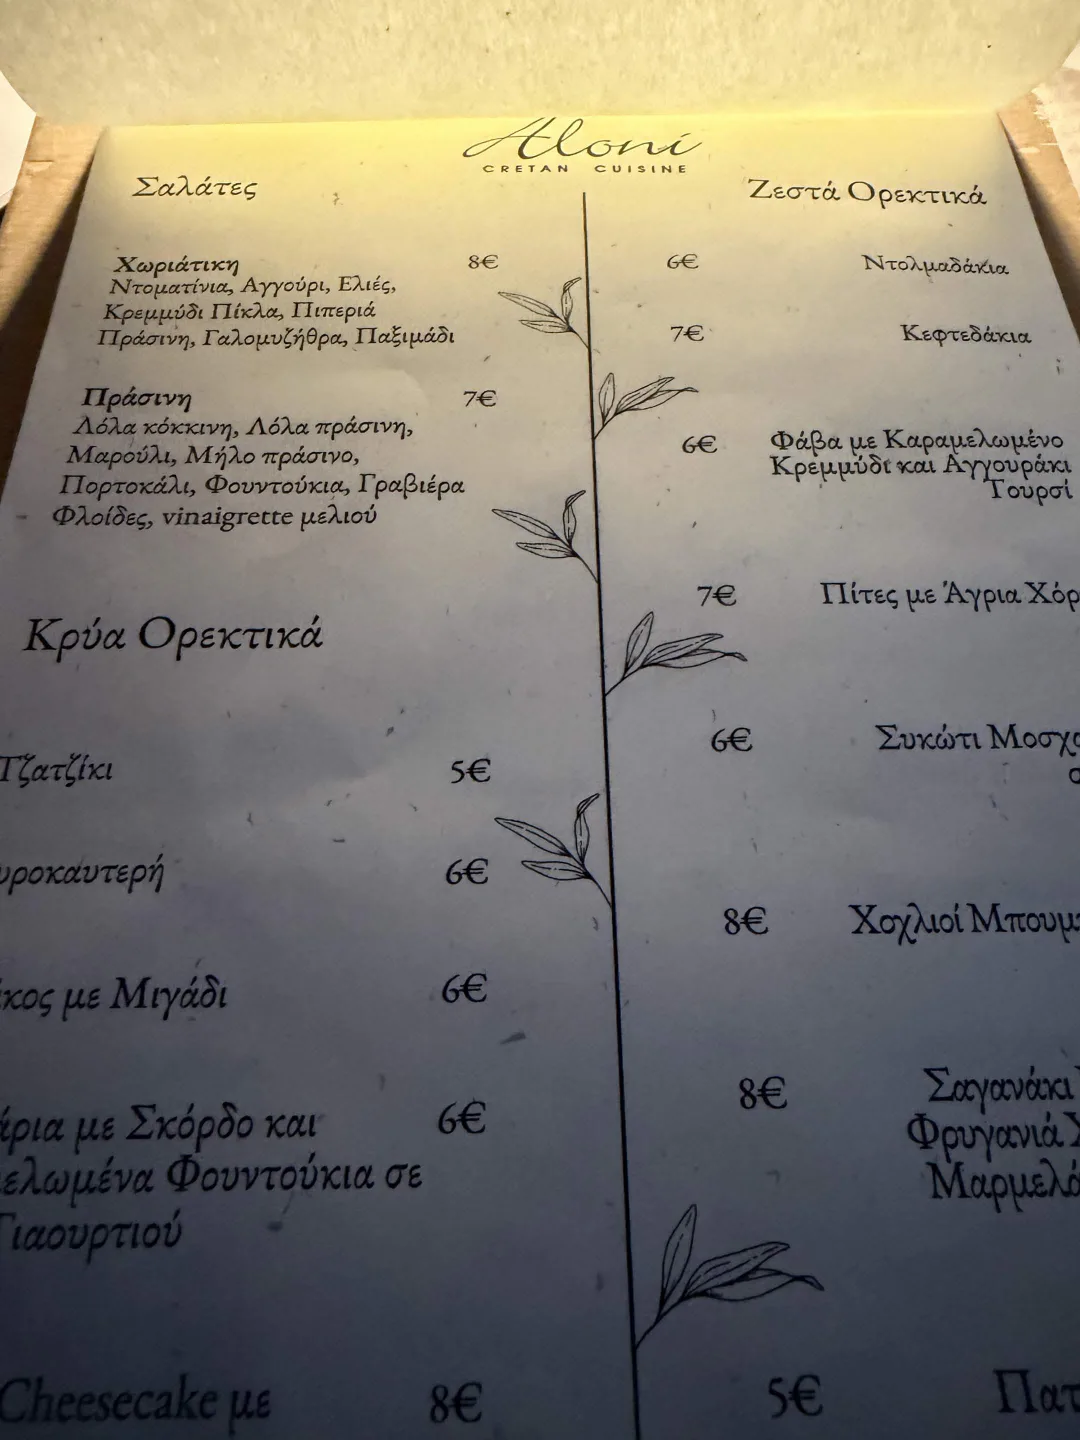 Aloni
CRETAN CUISINE
Σαλάτες
Χωριάτικη 8€
Ντοματίνια, Αγγούρι, Ελιές,
Κρεμμύδι Πίκλα, Πιπεριά
Πράσινη, Γαλομυζήθρα, Παξιμάδι
Πράσινη 7€
Λόλα κόκκινη, Λόλα πράσινη,
Μαρούλι, Μήλο πράσινο,
Πορτοκάλι, Φουντούκια, Γραβιέρα
Φλοίδες, vinaigrette μελιού
Κρύα Ορεκτικά
Τζατζίκι 5€
υροκαυτερή 6€
κος με Μιγάδι 6€
άρια με Σκόρδο και 6€
ελωμένα Φουντούκια σε
Γιαουρτιού
Cheesecake με 8€
Ζεστά Ορεκτικά
6€ Ντολμαδάκια
7€ Κεφτεδάκια
6€ Φάβα με Καραμελωμένο
Κρεμμύδι και Αγγουράκι
Τουρσί
7€ Πίτες με Άγρια Χόρ
6€ Συκώτι Μοσχ
8€ Χοχλιοί Μπουμ
8€ Σαγανάκι
Φρυγανιά
Μαρμελά
5€ Πατ